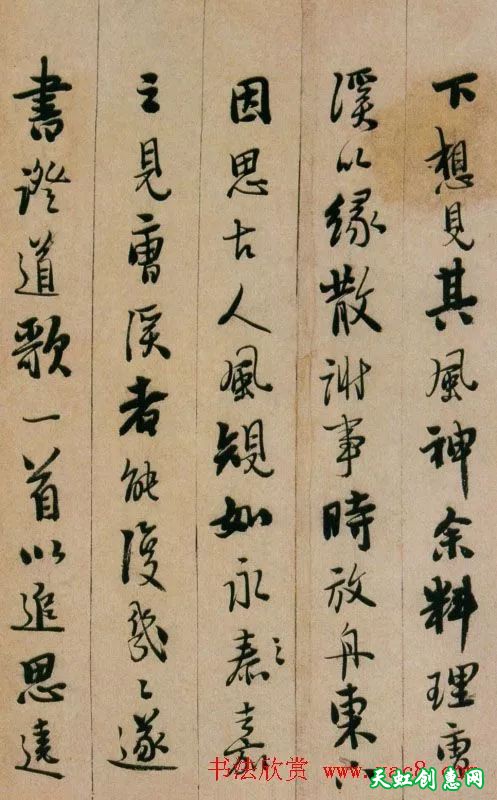 下想見其風神余料理曹
溪以緣散謝事時放舟東江
因思古人風規如永嘉
之見曹溪者能復幾〻遂
書證道歌一首以追思遠
书法欣赏 www.yac8.com
天虹创惠网